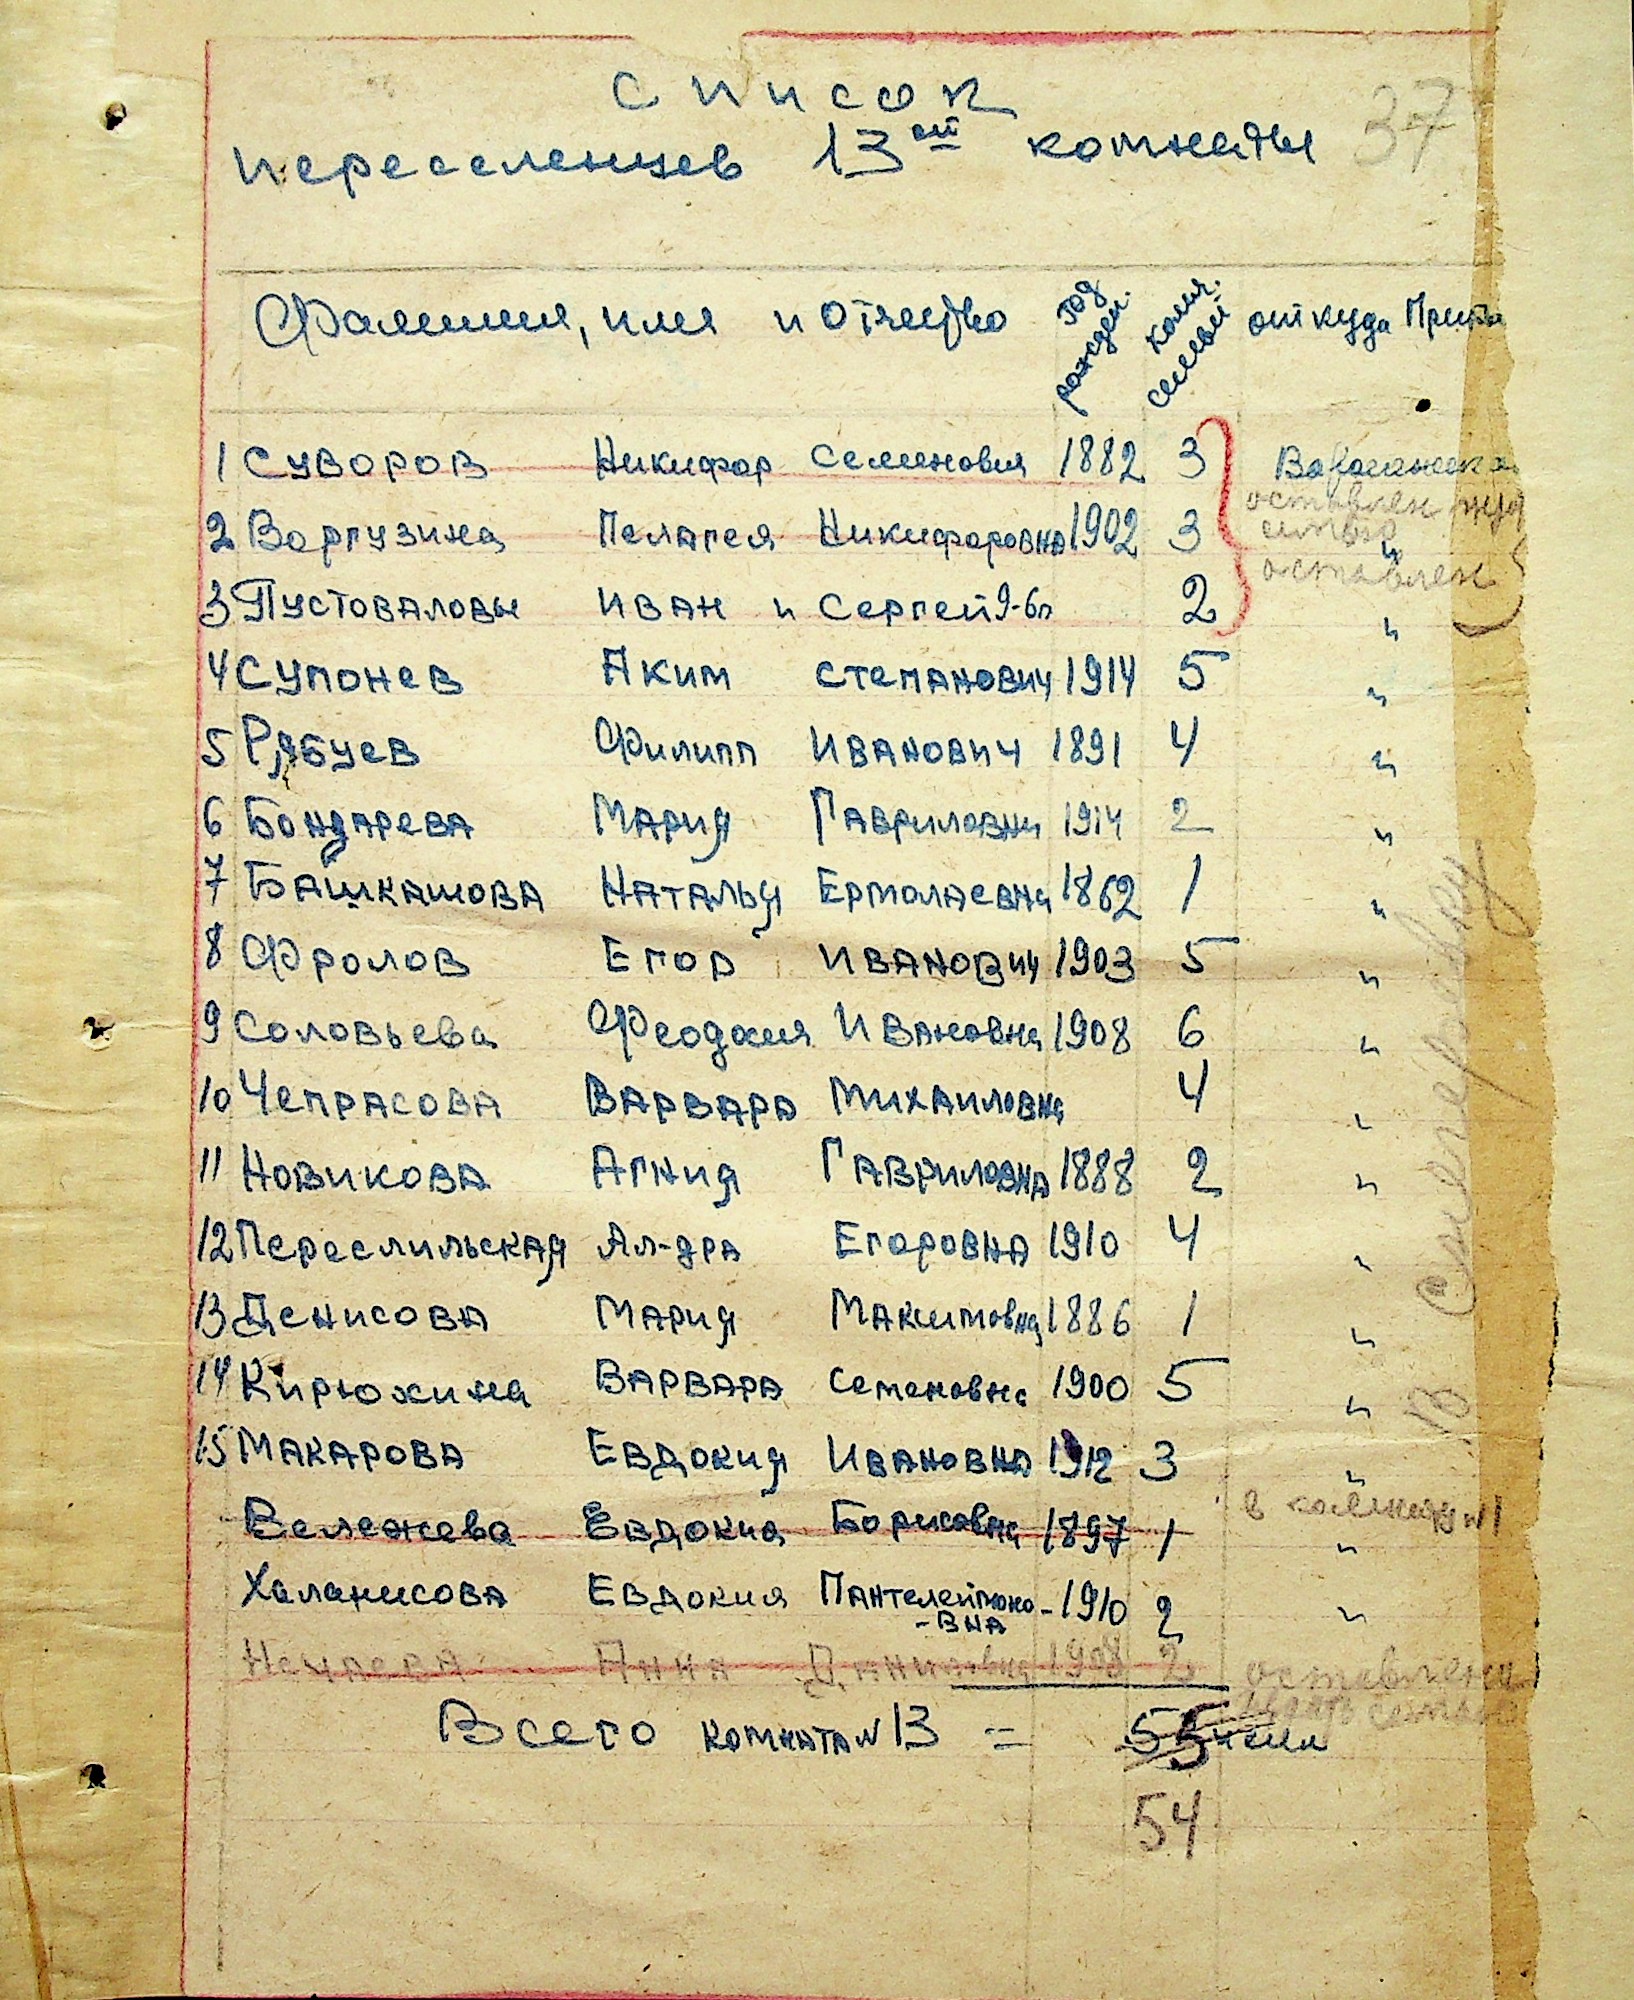 37
Список
переселенцев 13ой комнаты
Фамилия, имя и отчество год рожден. колич. семьи откуда Приб
1 Суворов Никифор Семенович 1882 3
оставлен
2 Воргузина Пелагея Никифоровна 1902 3 "
оставлен
3 Пустоваловы Иван и Сергей 9-6л 2 "
4 Супонев Аким Степанович 1914 5 "
5 Рябуев Филипп Иванович 1891 4 "
6 Бондарева Мария Гавриловна 1914 2 "
7 Башкашова Наталья Ермолаевна 1862 1 "
8 Фролов Егор Иванович 1903 5 "
9 Соловьева Феодосия Ивановна 1908 6 "
10 Чепрасова Варвара Михаиловна 4 "
11 Новикова Агния Гавриловна 1888 2 "
12 Переслильская Ал-дра Егоровна 1910 4 "
13 Денисова Мария Максимовна 1886 1 "
14 Кирюхина Варвара Семеновна 1900 5 "
15 Макарова Евдокия Ивановна 1912 3 "
в комнату №11
Вележева Евдокия Борисовна 1897 1 "
Халанисова Евдокия Пантелеймоно-вна - 1910 2 "
Нечаева Анна Даниловна 1908 2 оставлена
Всего комната N 13 = 55 чел
54